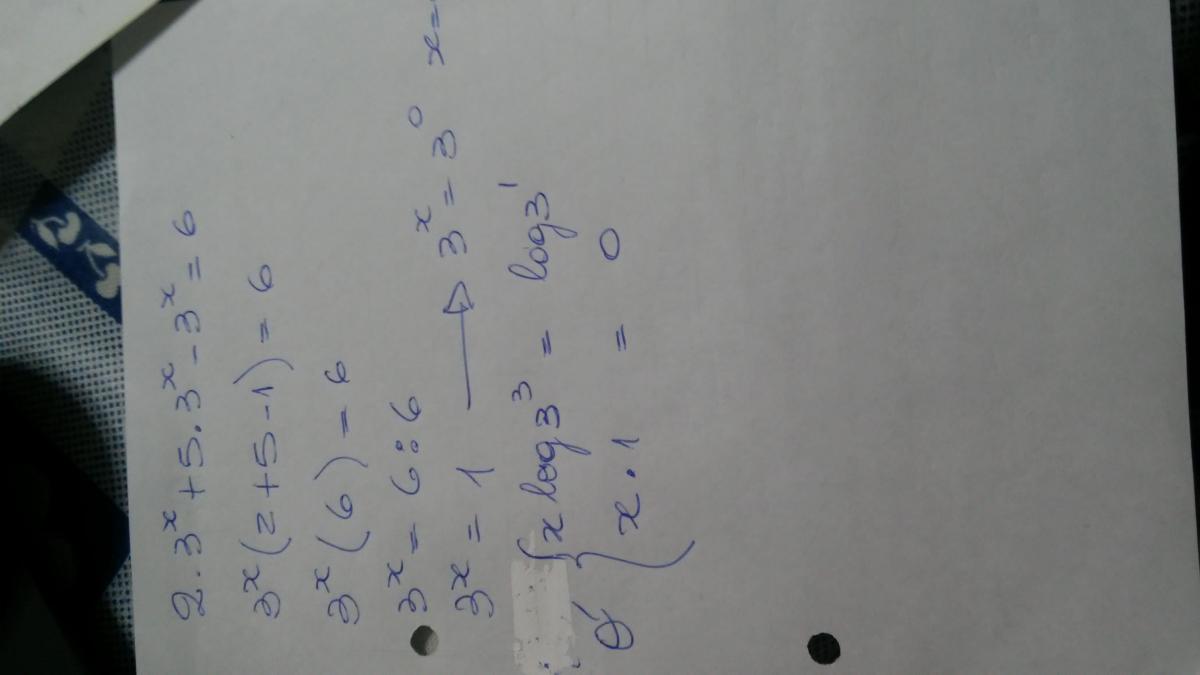 2·3ˣ + 5·3ˣ - 3ˣ = 6
3ˣ(2+5-1) = 6
3ˣ(6) = 6
3ˣ = 6:6
3ˣ = 1 → 3ˣ = 3⁰ x=
x log3³ = log3¹
x·1 = 0